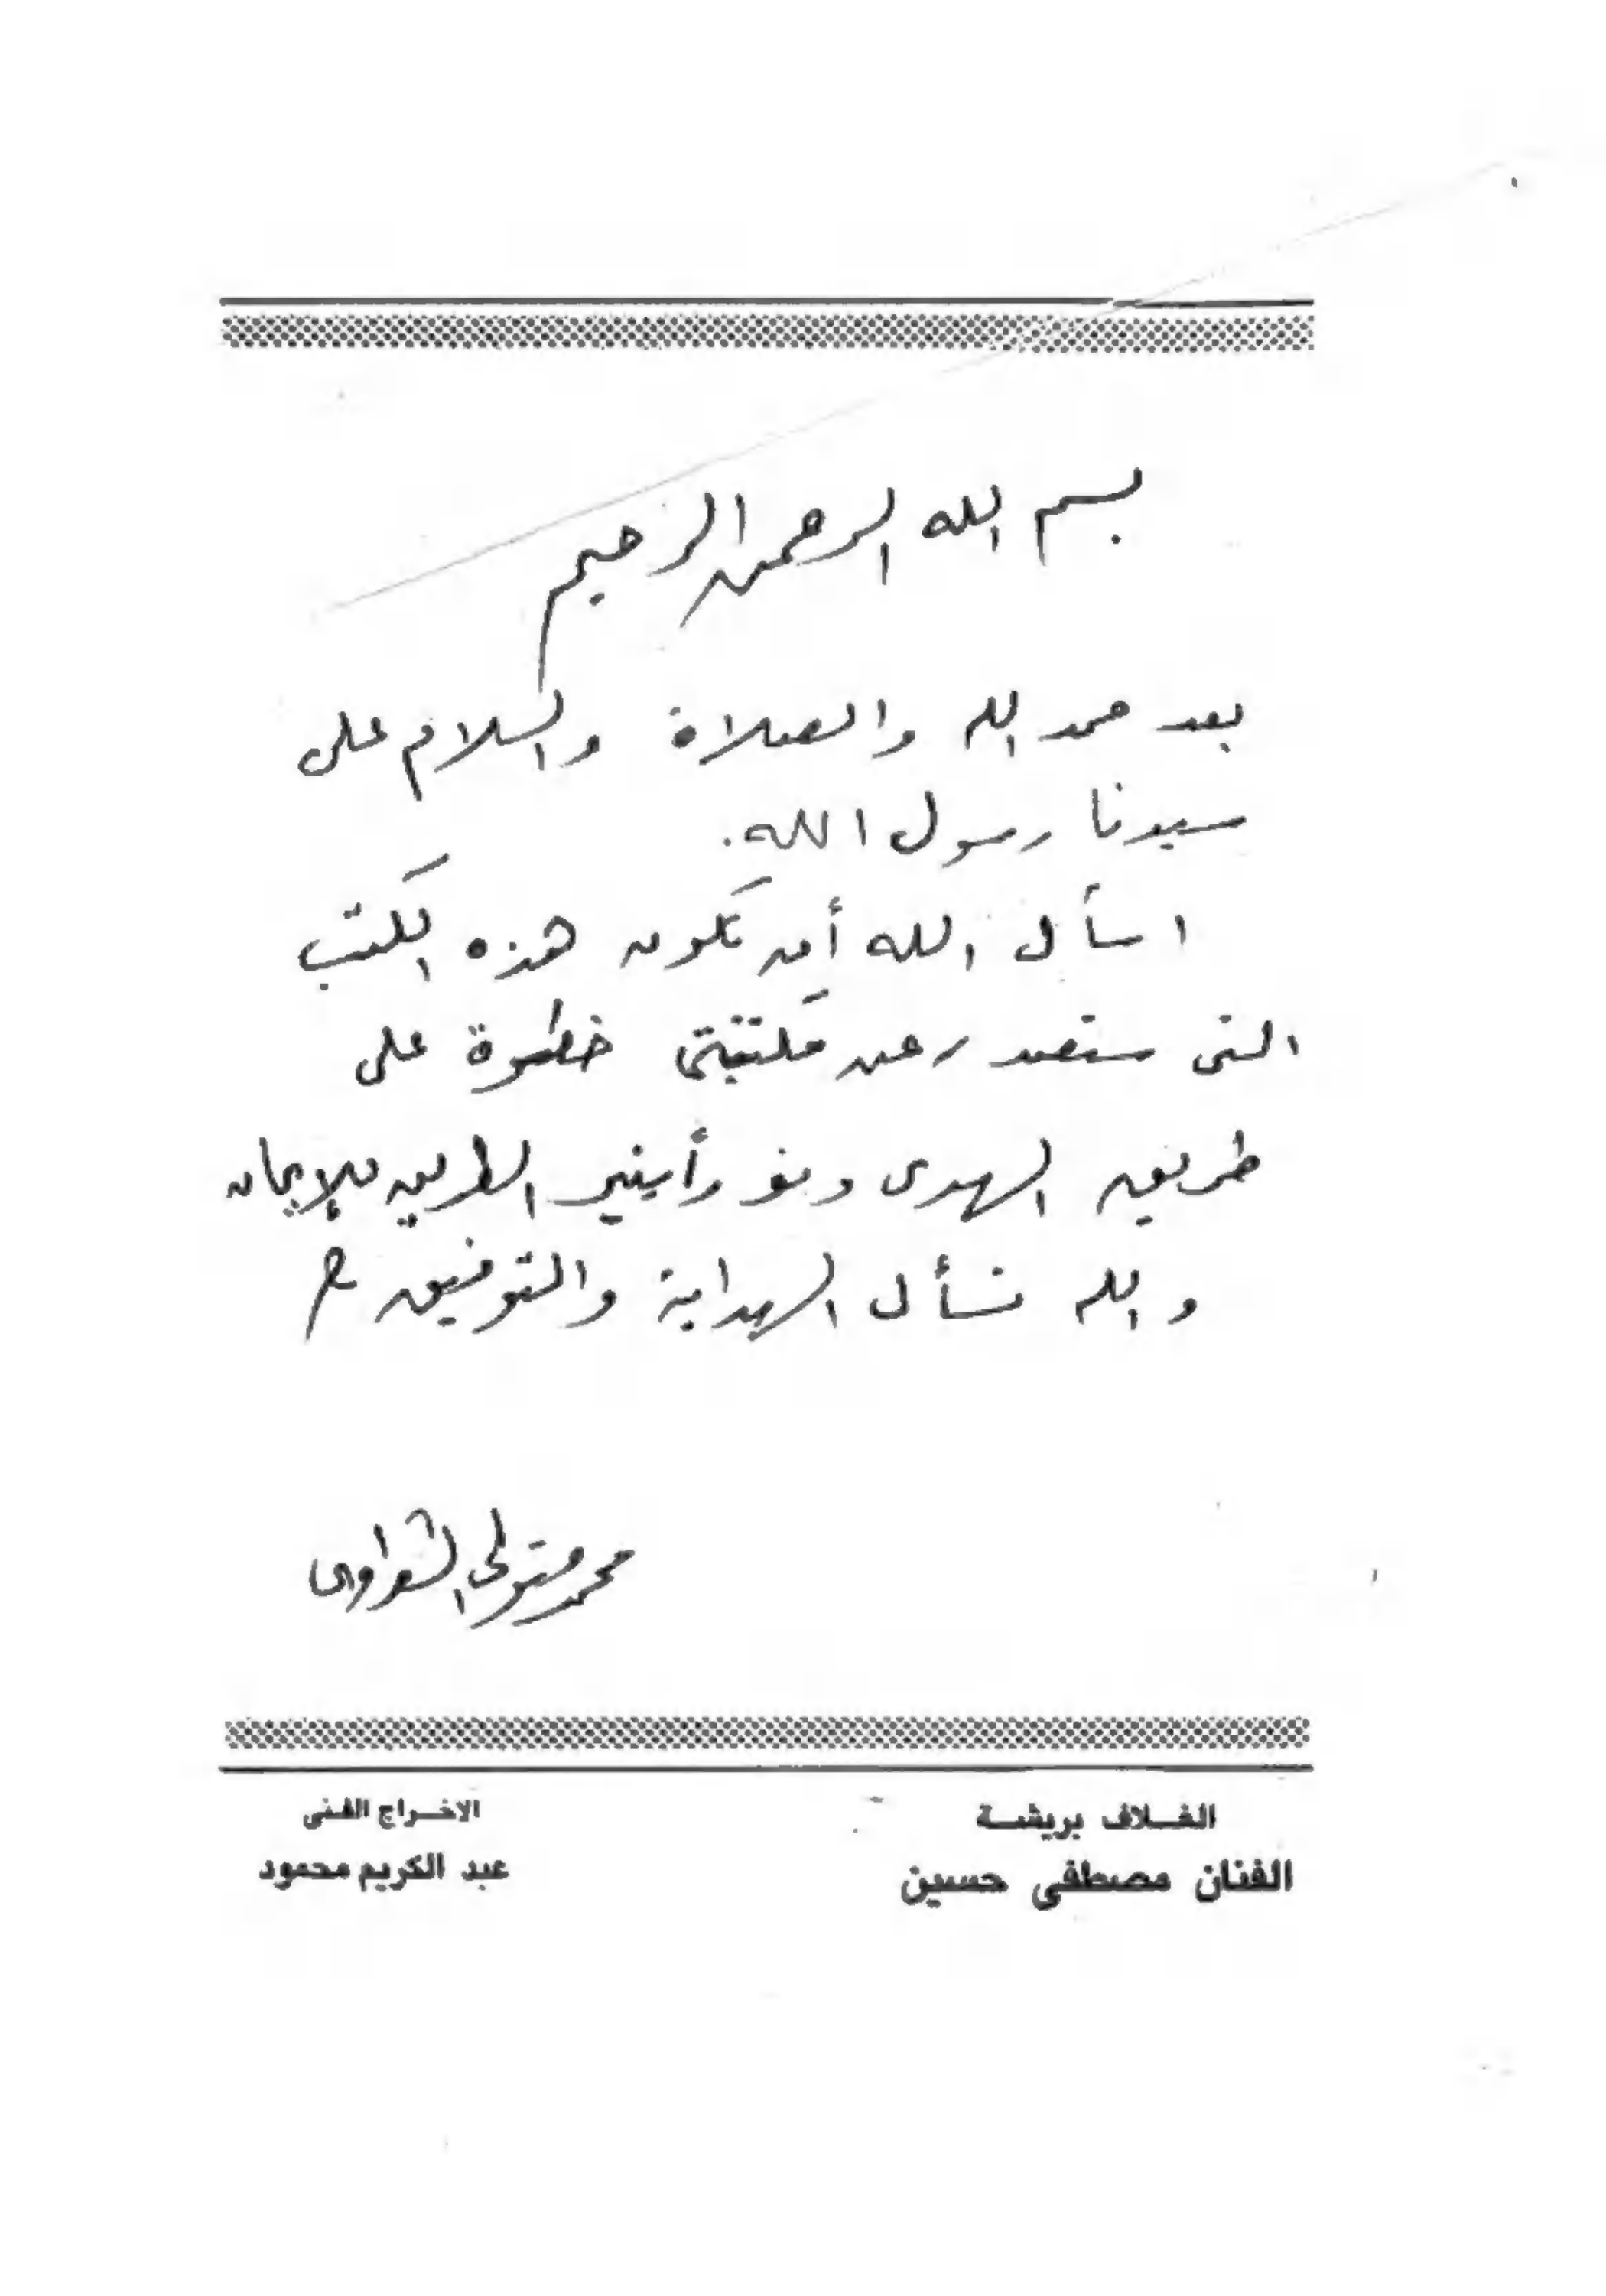 بسم الله الرحمن الرحيم
بعد حمد الله والصلاة والسلام على
سيدنا رسول الله.
اسأل الله أن تكون هذه الكتب
التى ستصدر عن مكتبتى خطوة على
طريق الهدى ونورا ينير الطريق للإيمان
والله نسأل الهداية والتوفيق
محمد متولى الشعراوى
الغلاف بريشة
الفنان مصطفى حسين
الاخراج الفنى
عبد الكريم محمود